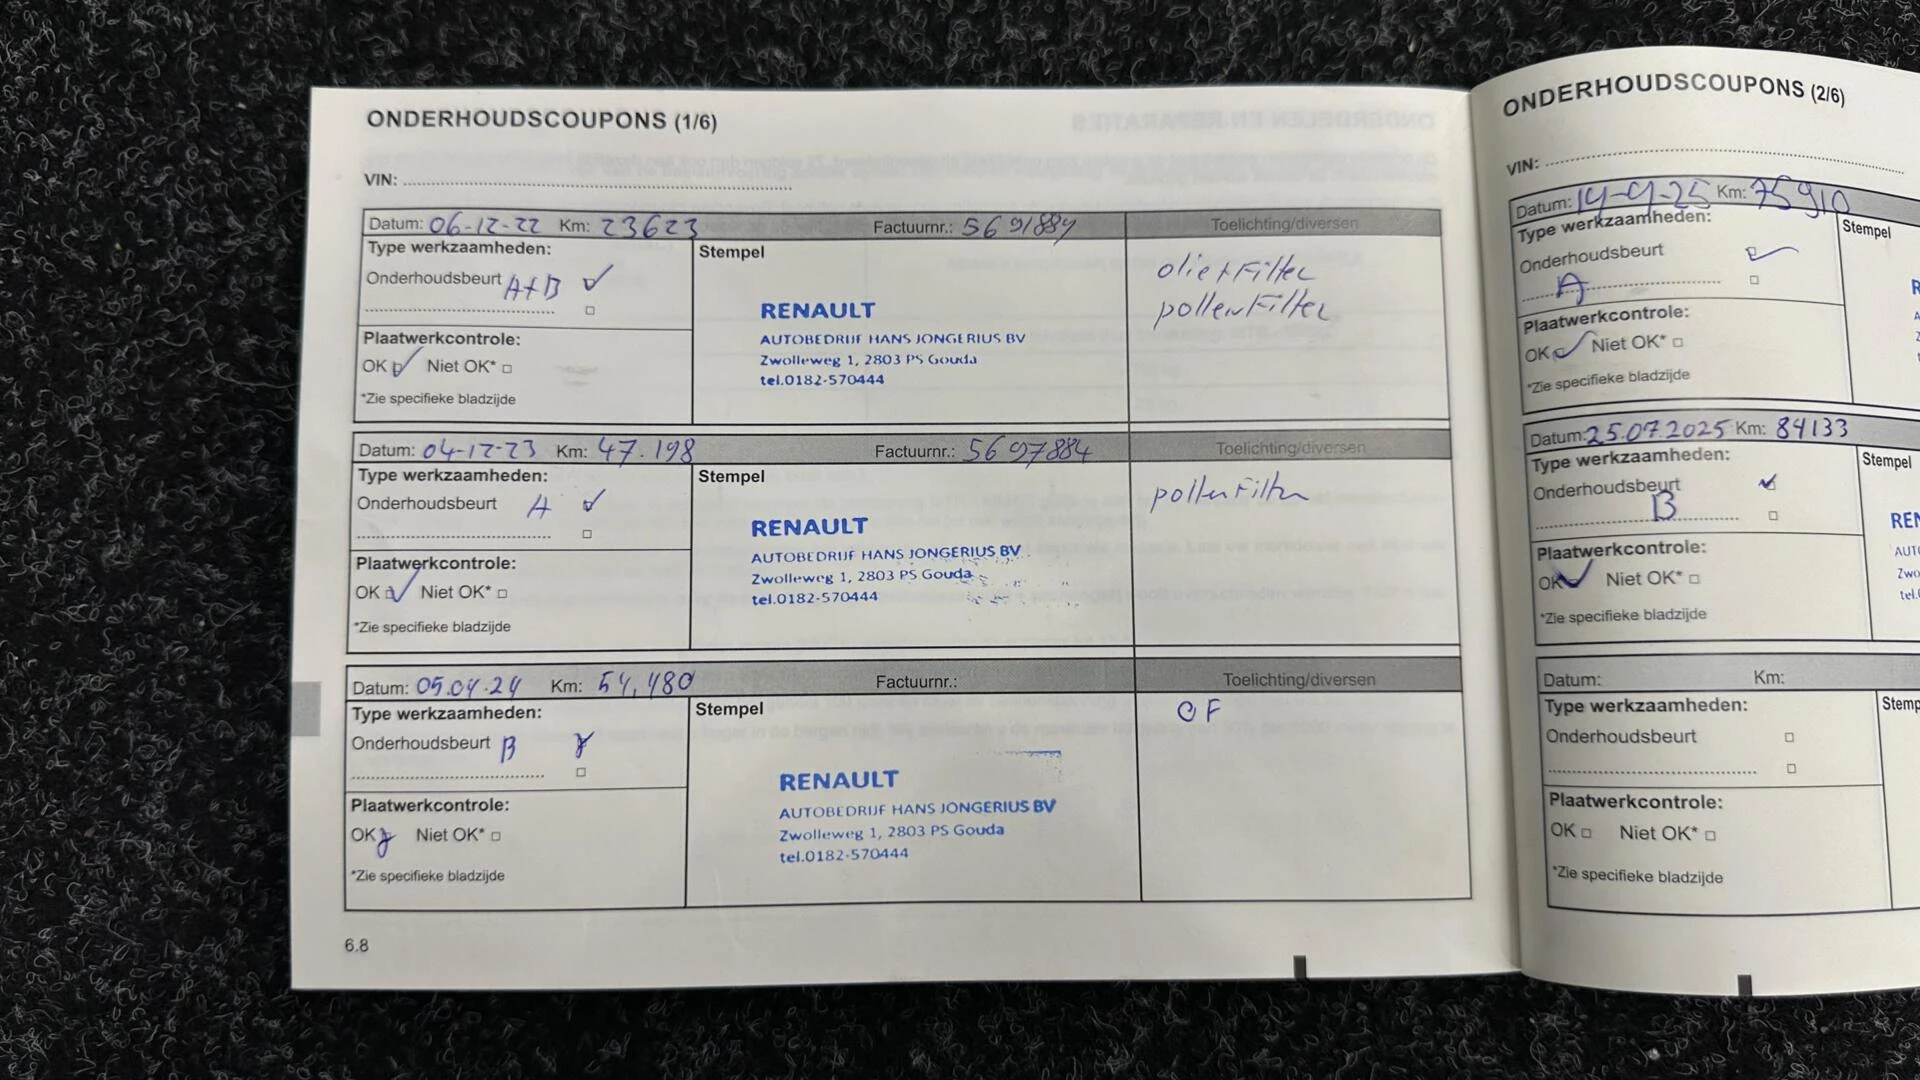 ONDERHOUDSCOUPONS (1/6)
VIN:
Datum: 06-12-22 Km: 23623 Factuurnr.: 5691884 Toelichting/diversen
Type werkzaamheden:
Stempel
Onderhoudsbeurt A+B
olie+Filter
pollenFilter
RENAULT
AUTOBEDRIJF HANS JONGERIUS BV
Zwolleweg 1, 2803 PS Gouda
tel.0182-570444
Plaatwerkcontrole:
OK Niet OK*
*Zie specifieke bladzijde
Datum: 04-12-23 Km: 47.198 Factuurnr.: 5697884 Toelichting/diversen
Type werkzaamheden:
Stempel
Onderhoudsbeurt A
pollenFilter
RENAULT
AUTOBEDRIJF HANS JONGERIUS BV
Zwolleweg 1, 2803 PS Gouda
tel.0182-570444
Plaatwerkcontrole:
OK Niet OK*
*Zie specifieke bladzijde
Datum: 05.04.24 Km: 54,480 Factuurnr.: Toelichting/diversen
Type werkzaamheden:
Stempel
Onderhoudsbeurt B
OF
RENAULT
AUTOBEDRIJF HANS JONGERIUS BV
Zwolleweg 1, 2803 PS Gouda
tel.0182-570444
Plaatwerkcontrole:
OK Niet OK*
*Zie specifieke bladzijde
6.8
ONDERHOUDSCOUPONS (2/6)
VIN:
Datum: Km: 75910
Type werkzaamheden:
Stempel
Onderhoudsbeurt
A
Plaatwerkcontrole:
OK Niet OK*
*Zie specifieke bladzijde
Datum: 25.07.2025 Km: 84133
Type werkzaamheden:
Stempel
Onderhoudsbeurt
B
Plaatwerkcontrole:
OK Niet OK*
*Zie specifieke bladzijde
Datum: Km:
Type werkzaamheden:
Onderhoudsbeurt
Plaatwerkcontrole:
OK Niet OK*
*Zie specifieke bladzijde